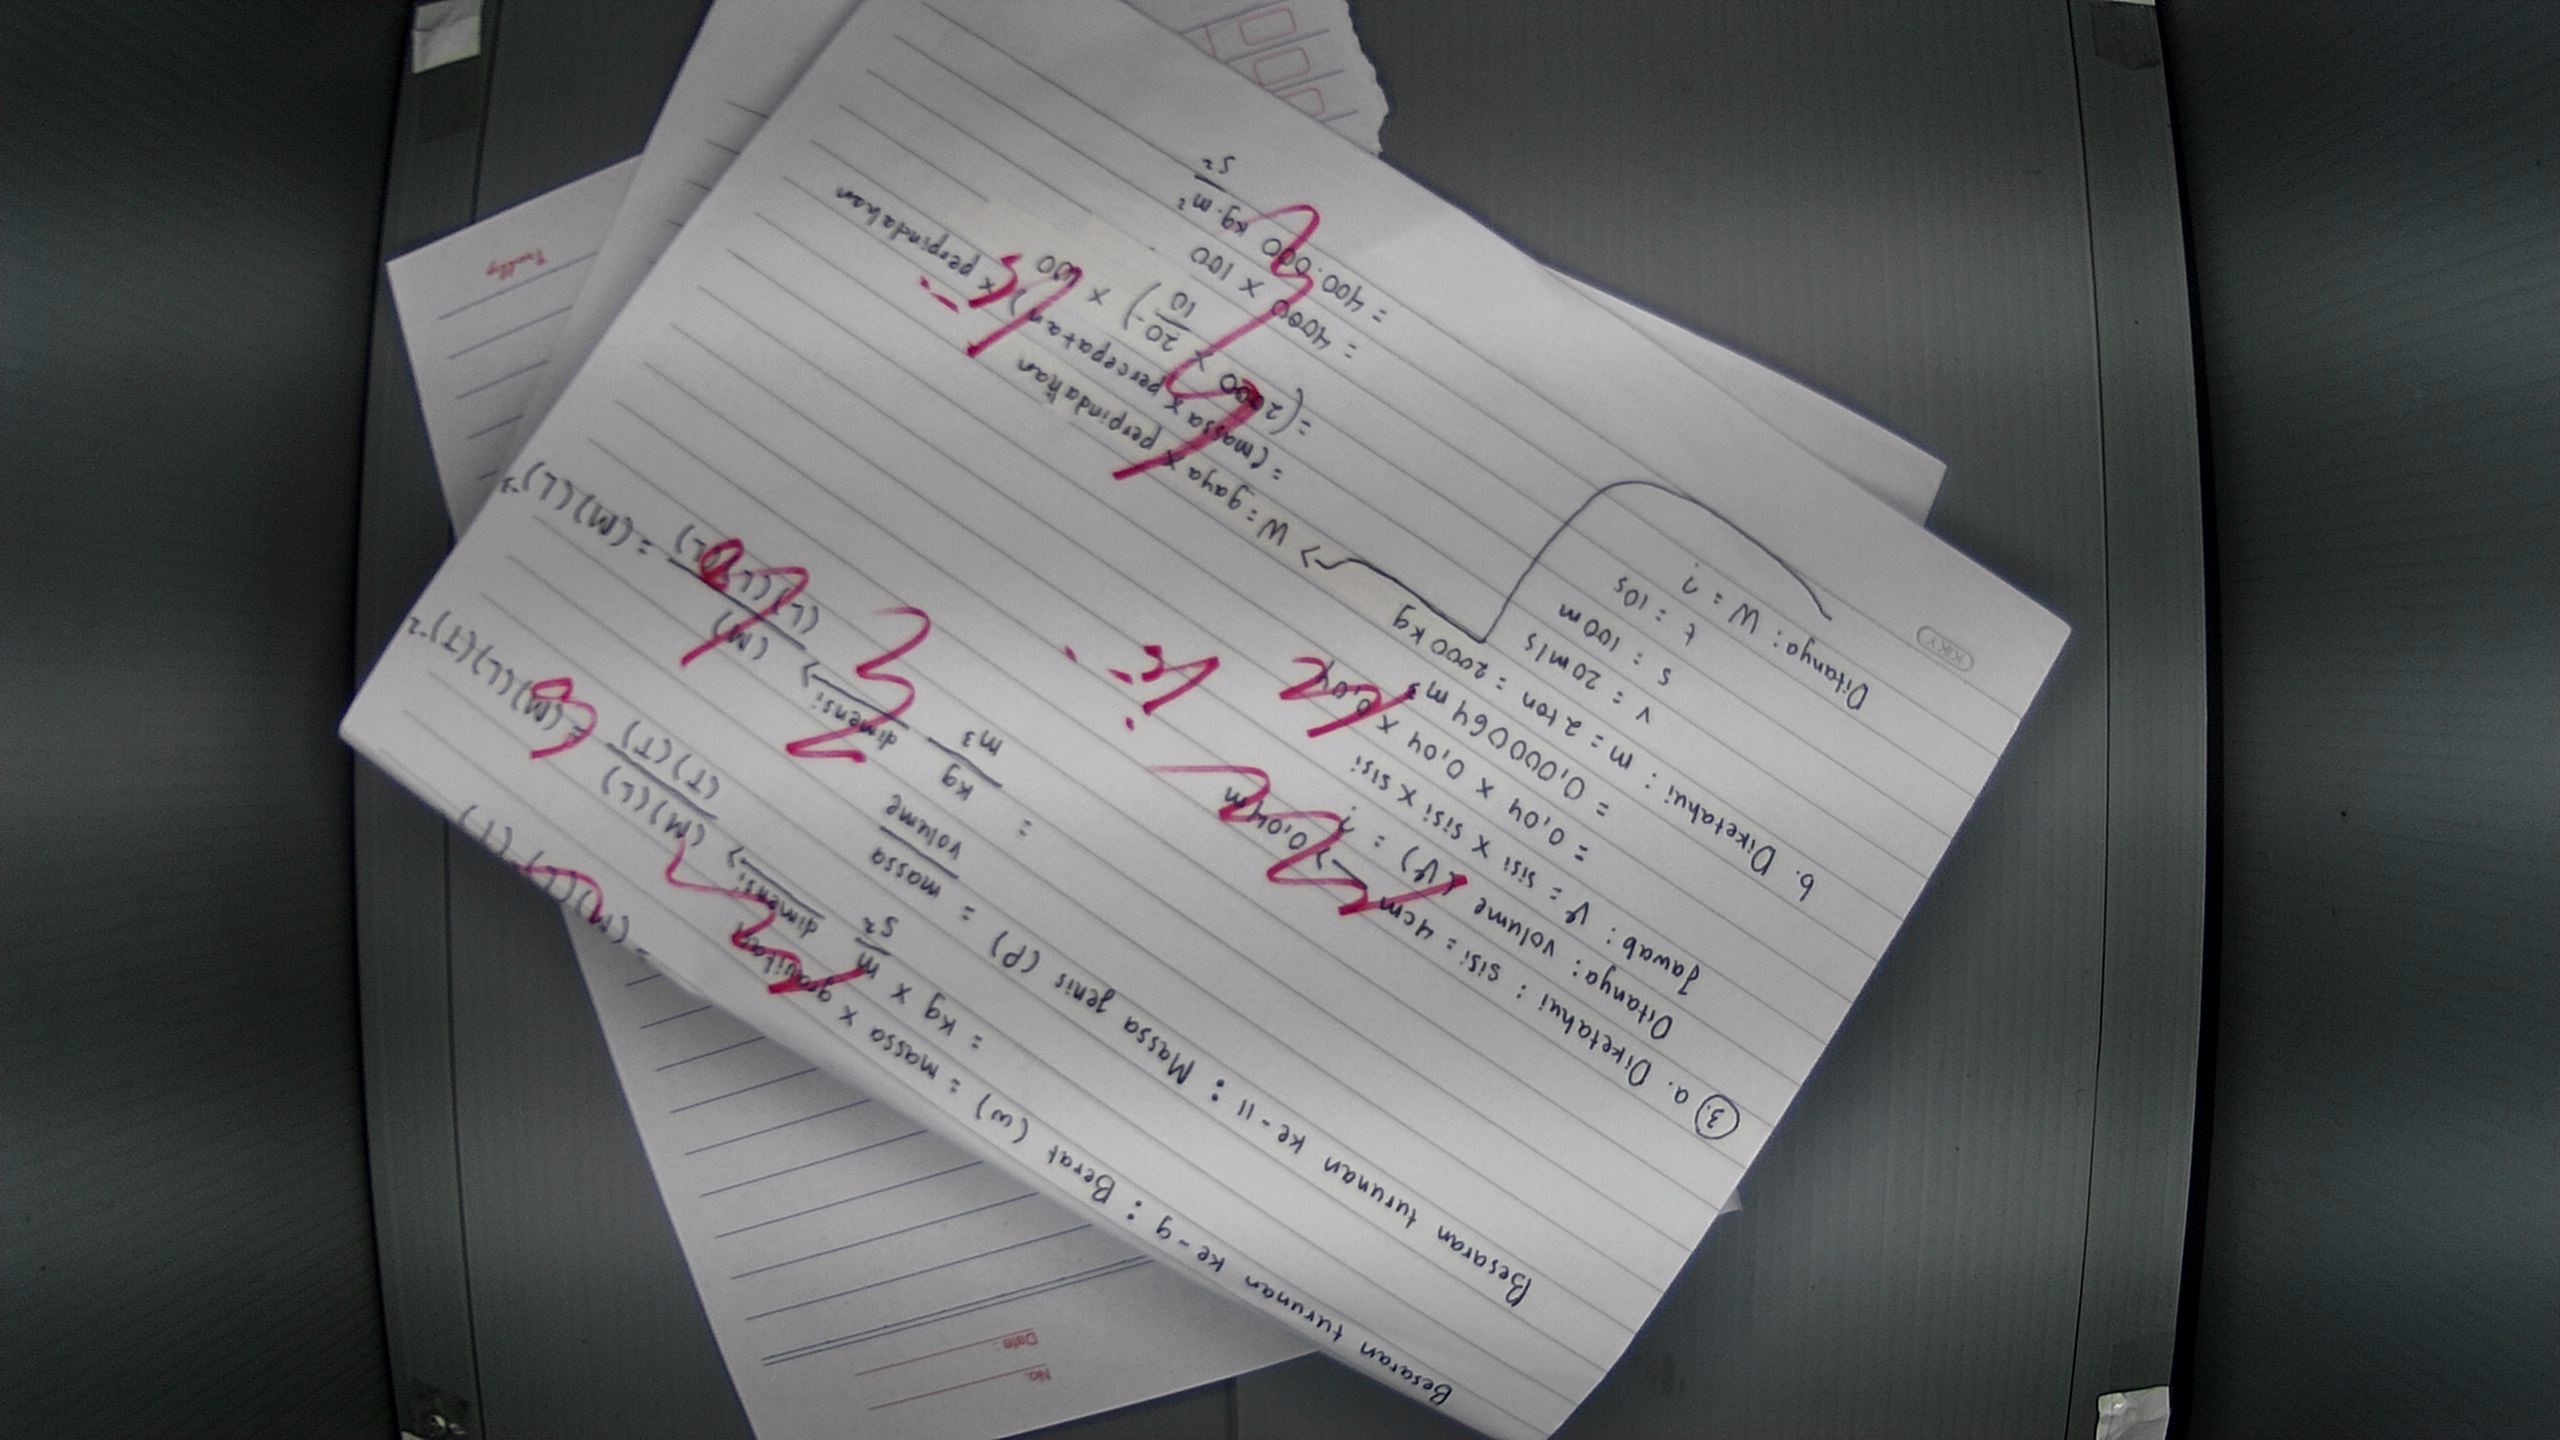 No.
Date:
Besaran turunan ke-9 : Berat (w) = massa x gravitasi
= kg x m/s² dimensi> (M)(L)/(T)(T) = (M)(L)(T)⁻²
Besaran turunan ke-11 : Massa jenis (ρ) = massa/volume
= kg/m³ dimensi> (M)/(L)(L)(L) = (M)(L)⁻³
3. a. Diketahui : sisi = 4cm -> 0,04m
Ditanya : volume (V) = ?
Jawab : V = sisi x sisi x sisi
= 0,04 x 0,04 x 0,04
= 0,000064 m³
b. Diketahui : m = 2 ton = 2000 kg
v = 20 m/s
s = 100 m
t = 10s
Ditanya : W = ?
W = gaya x perpindahan
= (massa x percepatan) x perpindahan
= (2000 x 20/10) x 100
= 4000 x 100
= 400.000 kg.m²/s²
KIKY